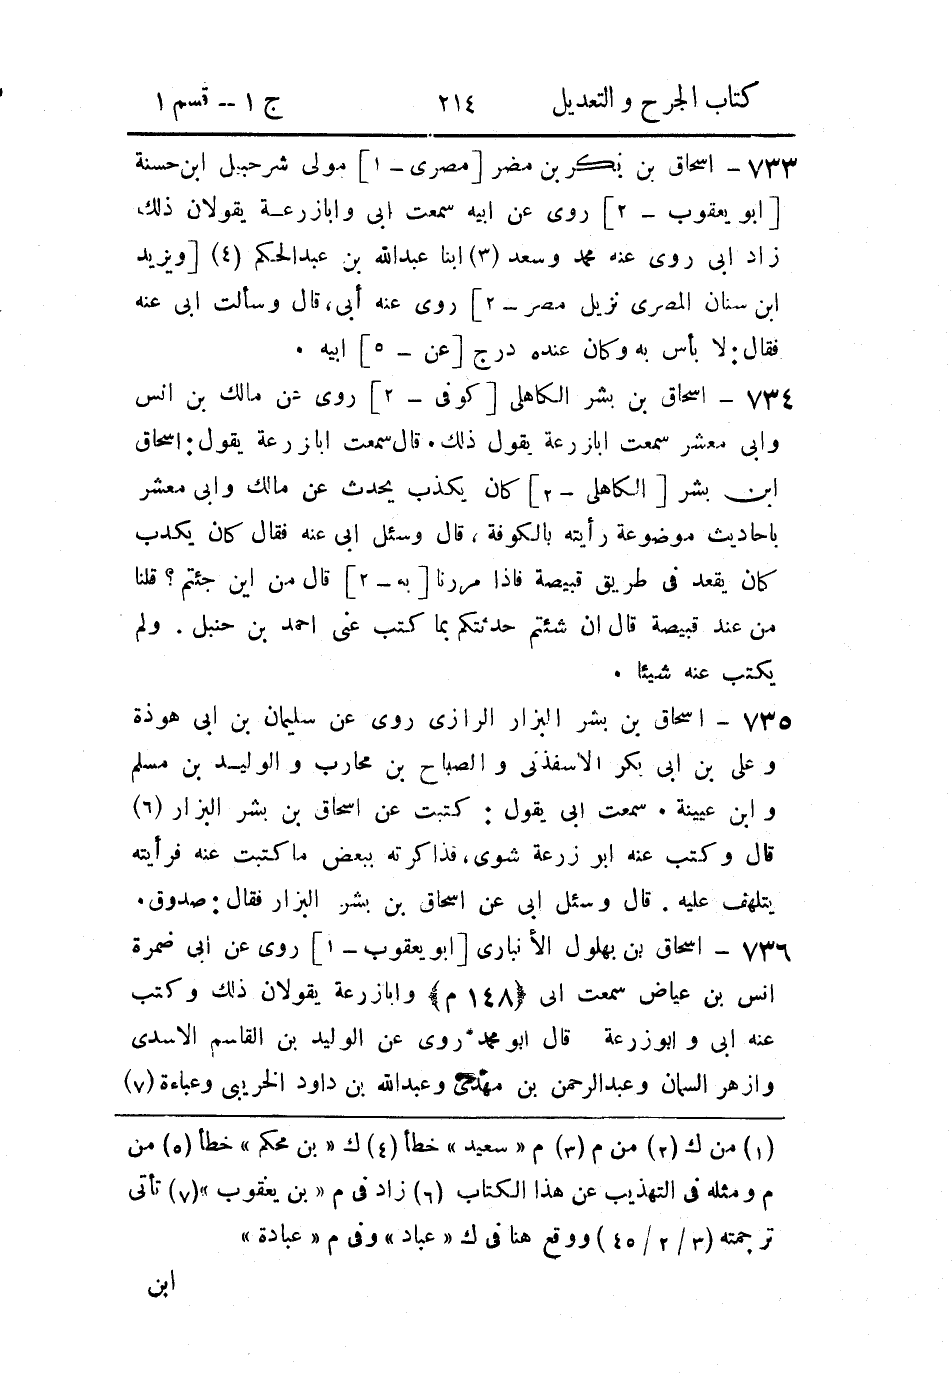 كتاب الجرح و التعديل ٢١٤ ج ١ -- قسم ١
٧٣٣ - اسحاق بن بكر بن مضر [مصرى - ١] مولى شرحبيل ابن حسنة
[ابو يعقوب - ٢] روى عن ابيه سمعت ابى وابازرعة يقولان ذلك
زاد ابى روى عنه محمد وسعد (٣) ابنا عبدالله بن عبدالحكم (٤) [ويزيد
ابن سنان المصرى نزيل مصر - ٢] روى عنه أبى، قال وسألت ابى عنه
فقال: لا بأس به وكان عنده درج [عن - ٥] ابيه .
٧٣٤ - اسحاق بن بشر الكاهلى [كوفى - ٢] روى عن مالك بن انس
وابى معشر سمعت ابازرعة يقول ذلك . قال سمعت ابازرعة يقول: اسحاق
ابن بشر [الكاهلى - ٢] كان يكذب يحدث عن مالك وابى معشر
باحاديث موضوعة رأيته بالكوفة ، قال وسئل ابى عنه فقال كان يكذب
كان يقعد فى طريق قبيصة فاذا مررنا [به - ٢] قال من اين جئتم ؟ قلنا
من عند قبيصة قال ان شئتم حدثتكم بما كتب عنى احمد بن حنبل . ولم
يكتب عنه شيئا .
٧٣٥ - اسحاق بن بشر البزار الرازى روى عن سليمان بن ابى هوذة
و على بن ابى بكر الاسفذنى و الصباح بن محارب و الوليد بن مسلم
و ابن عيينة . سمعت ابى يقول : كتبت عن اسحاق بن بشر البزار (٦)
قال وكتب عنه ابو زرعة شوى، فذاكرته ببعض ماكتبت عنه فرأيته
يتلهف عليه . قال وسئل ابى عن اسحاق بن بشر البزار فقال: صدوق.
٧٣٦ - اسحاق بن بهلول الأنبارى [ابو يعقوب - ١] روى عن ابى ضمرة
انس بن عياض سمعت ابى ﴿١٤٨ م﴾ وابازرعة يقولان ذلك وكتب
عنه ابى و ابوزرعة قال ابو محمد روى عن الوليد بن القاسم الاسدى
وازهر السمان وعبدالرحمن بن مهدى وعبدالله بن داود الخريبى وعباءة (٧)
(١) من ك (٢) من م (٣) م « سعيد » خطأ (٤) ك « بن محكم » خطأ (٥) من
م ومثله فى التهذيب عن هذا الكتاب (٦) زاد فى م « بن يعقوب »(٧) تأتى
ترجمته (٣ / ٢ / ٤٥) ووقع هنا فى ك « عباد » وفى م « عبادة »
ابن